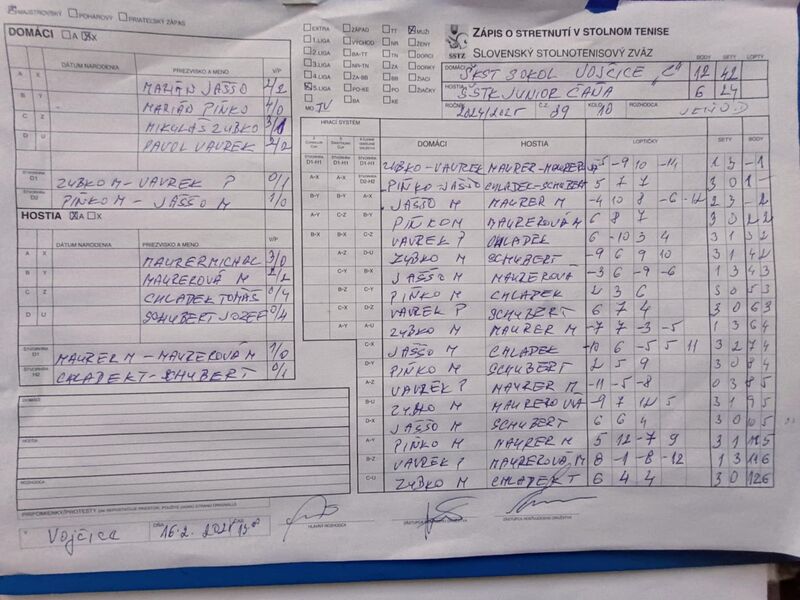 MAJSTROVSKÝ POHÁROVÝ PRIATEĽSKÝ ZÁPAS
DOMÁCI A X
DÁTUM NARODENIA PRIEZVISKO A MENO V/P
A X MARIÁN JAŠŠO 2/2
B Y MARIÁN PIŇKO 4/0
C Z MIKULÁŠ ZUBKO 3/1
D U PAVOL VAVREK 2/2
D1 ZUBKO M - VAVREK P 0/1
D2 PIŇKO M - JAŠŠO M 1/0
HOSTIA A X
DÁTUM NARODENIA PRIEZVISKO A MENO V/P
A X MAURER MICHAL 3/0
B Y MAUREROVÁ M 2/2
C Z CHLADEK TOMÁŠ 0/4
D U SCHUBERT JOZEF 0/4
D1 MAURER M - MAUREROVÁ M 1/0
H2 CHLADEK T - SCHUBERT 0/1
DOMÁCI
HOSTIA
ROZHODCA
PRIPOMIENKY/PROTESTY
Vojčice DŇA 16.2.
HLAVNÝ ROZHODCA
EXTRA ZÁPAD TT MUŽI
1.LIGA VÝCHOD NR ŽENY
2.LIGA BA-TT TN DORCI
3.LIGA NR-TN ZA DORKY
4.LIGA ZA-BB BB ŽIACI
5.LIGA PO-KE PO ŽIAČKY
MO IV BA KE
SSTZ
ZÁPIS O STRETNUTÍ V STOLNOM TENISE
SLOVENSKÝ STOLNOTENISOVÝ ZVÄZ
BODY SETY LOPTY
DOMÁCI ŠKST SOKOL VOJČICE "C" 12 42
HOSTIA SSTK JUNIOR ČAŇA 6 27
ROČNÍK 2024/2025 Č.Z. 89 KOLO 10 ROZHODCA
HRACÍ SYSTÉM
DOMÁCI HOSTIA LOPTIČKY SETY BODY
ZUBKO-VAVREK MAURER-MAUREROVÁ 5 -9 10 -11 1 3 - 1
PIŇKO-JAŠŠO CHLADEK-SCHUBERT 5 7 7 3 0 1 -
JAŠŠO M MAURER M -4 10 8 -6 -12 2 3 - 2
PIŇKO M MAUREROVÁ M 6 8 7 3 0 2 2
VAVREK P CHLADEK 6 -10 3 4 3 1 3 2
ZUBKO M SCHUBERT -9 6 9 10 3 1 4 2
JAŠŠO M MAUREROVÁ -3 6 -9 -6 1 3 4 3
PIŇKO M CHLADEK 2 3 6 3 0 5 3
VAVREK P SCHUBERT 6 7 4 3 0 6 3
ZUBKO M MAURER M -7 7 -3 -5 1 3 6 4
JAŠŠO M CHLADEK -10 6 -5 5 11 3 2 7 4
PIŇKO M SCHUBERT 2 5 9 3 0 8 4
VAVREK P MAURER M -11 -5 -8 0 3 8 5
ZUBKO M MAUREROVÁ -9 7 12 5 3 1 9 5
JAŠŠO M SCHUBERT 6 6 4 3 0 10 5
PIŇKO M MAURER M 5 12 -7 9 3 1 11 5
VAVREK P MAUREROVÁ M 8 -1 -8 -12 1 3 11 6
ZUBKO M CHLADEK T 6 4 4 3 0 12 6